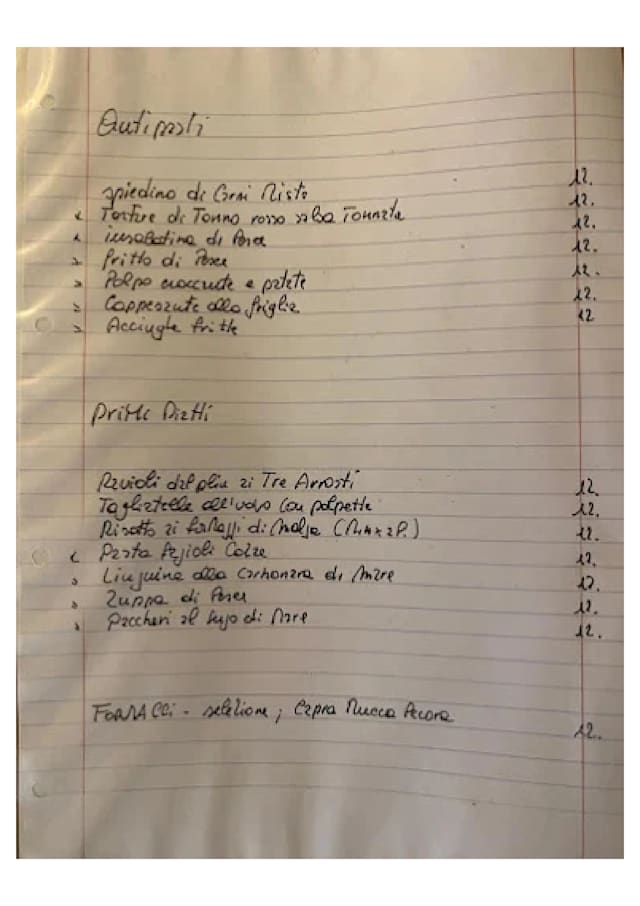 Antipasti
spiedino di Carni Miste 12.
Tartare di Tonno rosso salsa Tonnata 12.
insalatina di Pesce 12.
Fritto di Pesce 12.
Polpo croccante e patate 12.
Cappesante alla griglia 12.
Acciughe fritte 12
Primi Piatti
Ravioli del plin ai Tre Arrosti 12.
Tagliatelle all'uovo con polpette 12.
Risotto ai formaggi di Malga (Min x 2P.) 12.
Pasta Fagioli Cozze 12.
Linguine alla Carbonara di Mare 12.
Zuppa di Pesce 12.
Paccheri al sugo di Mare 12.
FORMAGGi - selezione, Capra Mucca Pecora
12.